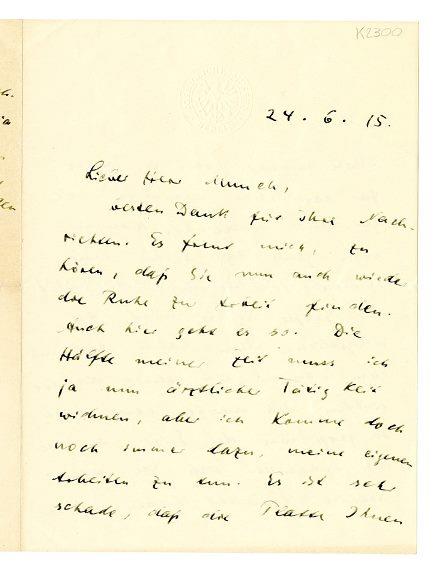 K2300
24. 6. 15.
Lieber Herr Munch,
besten Dank für Ihre Nach-
richten. Es freut mich, zu
hören, daß Sie nun auch wieder
die Ruhe zur Arbeit finden.
Auch hier geht es so. Die
Hälfte meiner Zeit muss ich
ja nun ärztlicher Tätigkeit
widmen, aber ich komme doch
noch immer dazu, meine eigenen
Arbeiten zu tun. Es ist sehr
schade, daß die Platte Ihnen